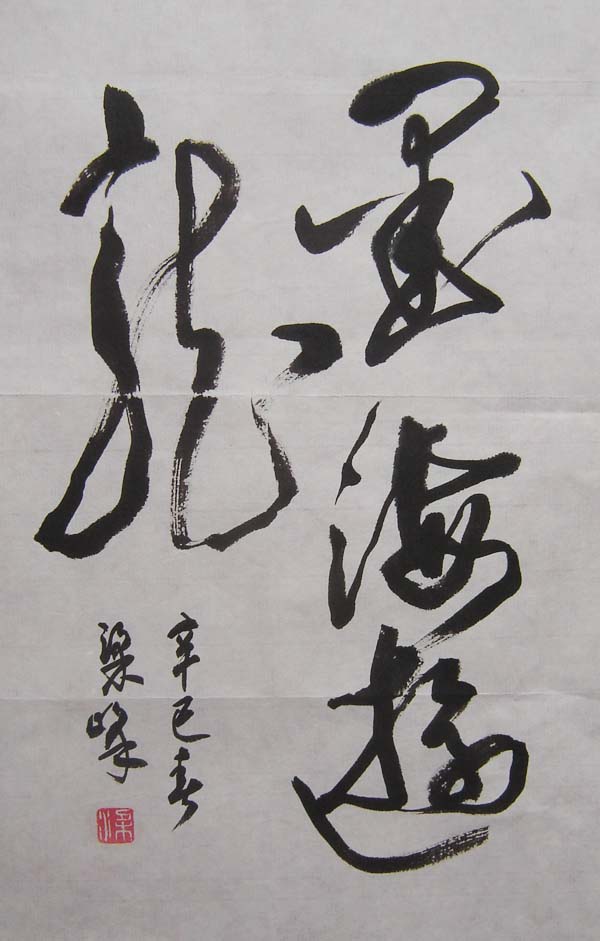 墨海遊
龍
辛巳春
梁峰
梁